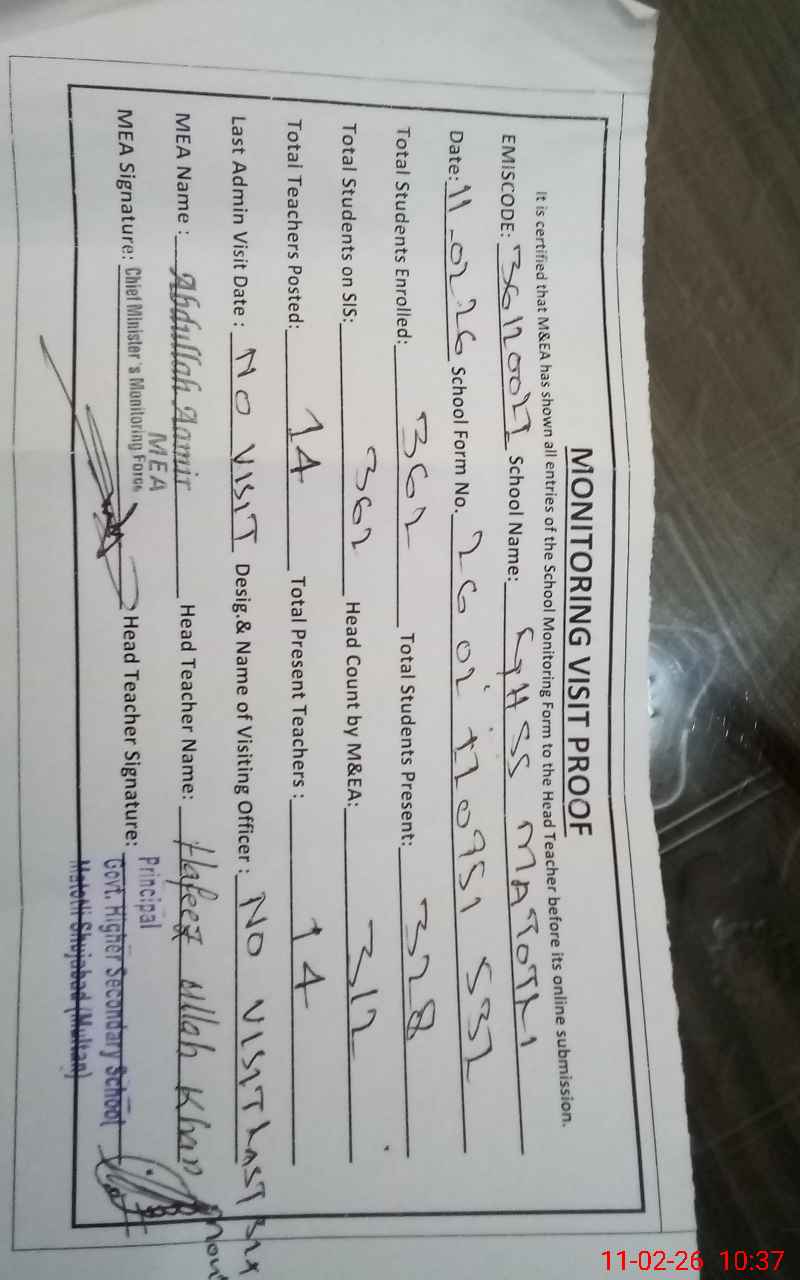 MONITORING VISIT PROOF
It is certified that M&EA has shown all entries of the School Monitoring Form to the Head Teacher before its online submission.
EMISCODE: 36120027 School Name: GHSS MATOTLI
Date: 11-02 26 School Form No. 26 02 120951 532
Total Students Enrolled: 362 Total Students Present: 328
Total Students on SIS: 362 Head Count by M&EA: 312
Total Teachers Posted: 14 Total Present Teachers : 14
Last Admin Visit Date : NO VISIT Desig.& Name of Visiting Officer : NO VISIT LAST SIX
MEA Name : Abdullah Aamir Head Teacher Name: Hafeez ullah Khan
MEA
MEA Signature: Chief Minister's Monitoring Force Head Teacher Signature:
Principal
Govt. Higher Secondary School
Matotli Shujabad (Multan)
11-02-26 10:37